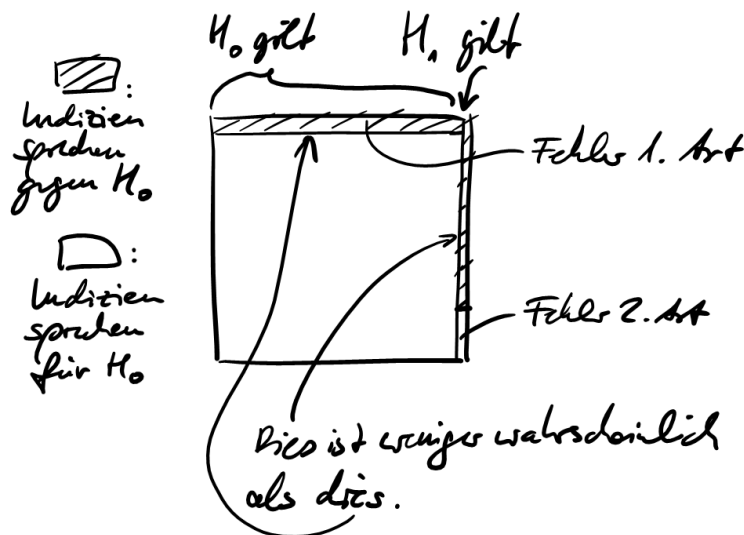 H₀ gilt
H₁ gilt
:
Indizien
sprechen
gegen H₀
:
Indizien
sprechen
für H₀
Fehler 1. Art
Fehler 2. Art
Dies ist weniger wahrscheinlich
als dies.